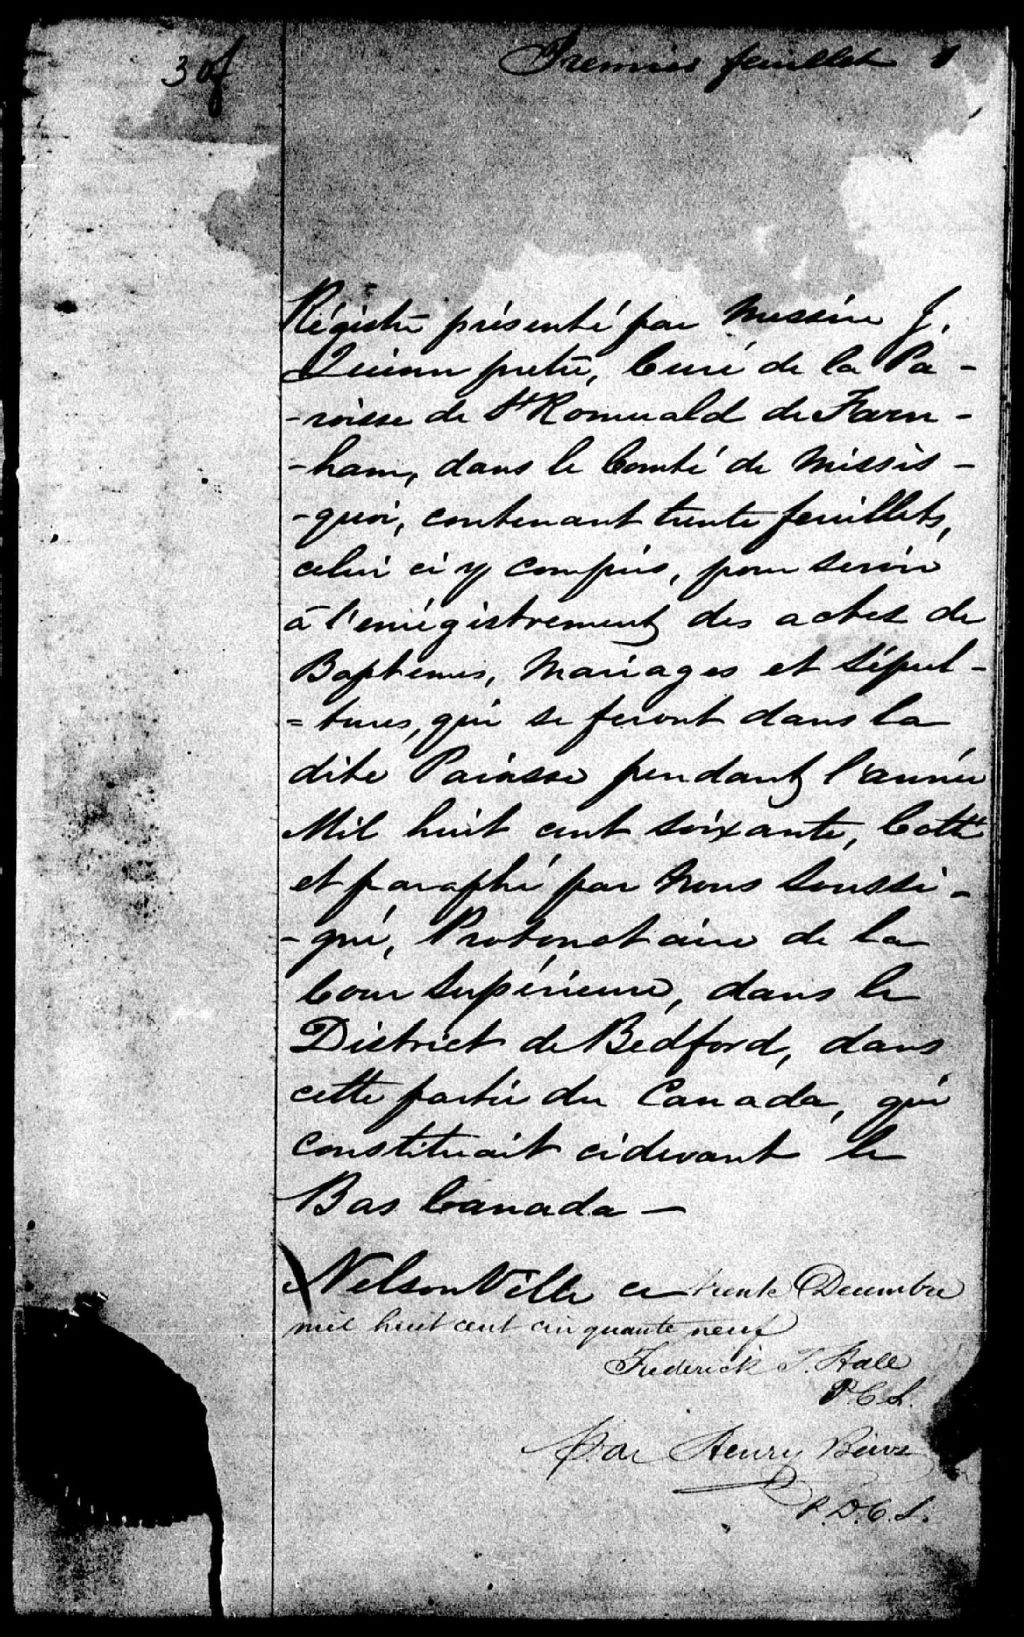 30f
Premier feuillet 1
Régistre présenté par Messire J.
Quinn pretre, Curé de la Pa-
-roisse de St Romuald de Farn-
-ham, dans le Comté de Missis-
-quoi, contenant trente feuillets,
celui ci y compris, pour servir
à l'enrégistrement des actes de
Baptemes, Mariages et Sépul-
=tures, qui se feront dans la
dite Paroisse pendant l'année
Mil huit cent soixante, Cotté
et paraphé par Nous Soussi-
-gné, Protonotaire de la
Cour Supérieure, dans le
District de Bedford, dans
cette partie du Canada, qui
constituait cidevant le
Bas Canada —
NelsonVille ce trente Decembre
mil huit cent cinquante neuf
Frederick T. Hall
P.C.S.
Par Henry
P.D.C.S.